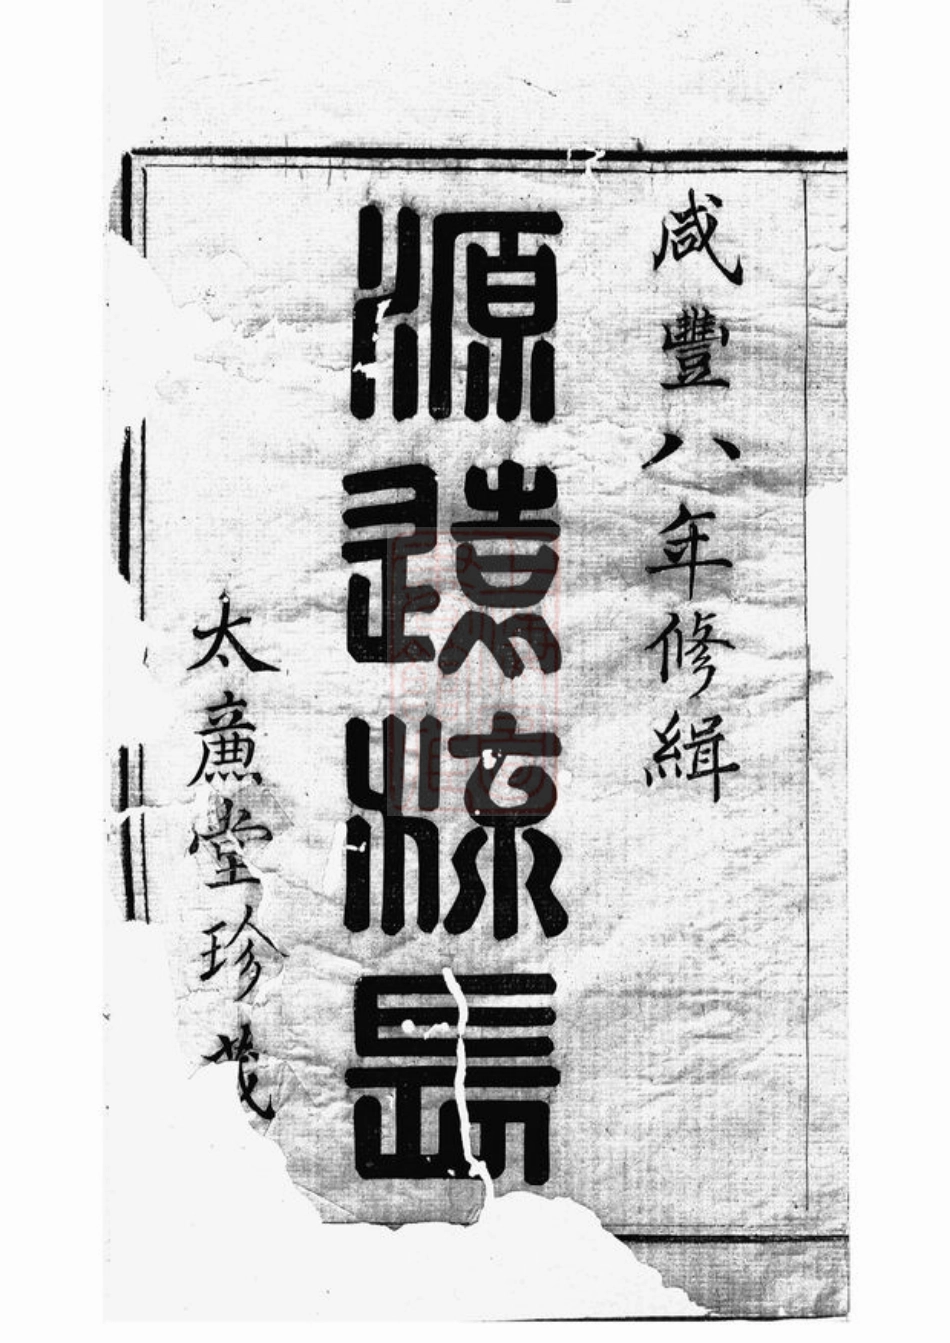 咸豐八年修緝
源遠流長
太廉堂珍藏